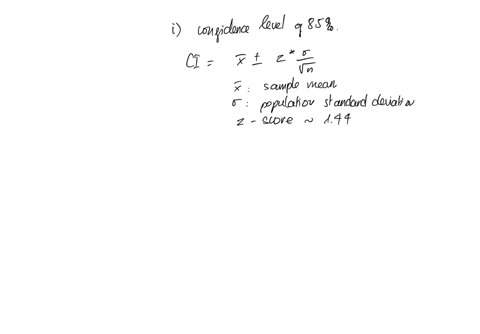 i) confidence level of 85%.
CI = x̄ ± z* σ/√n
x̄ : sample mean
σ : population standard deviation
z - score ~ 1.44